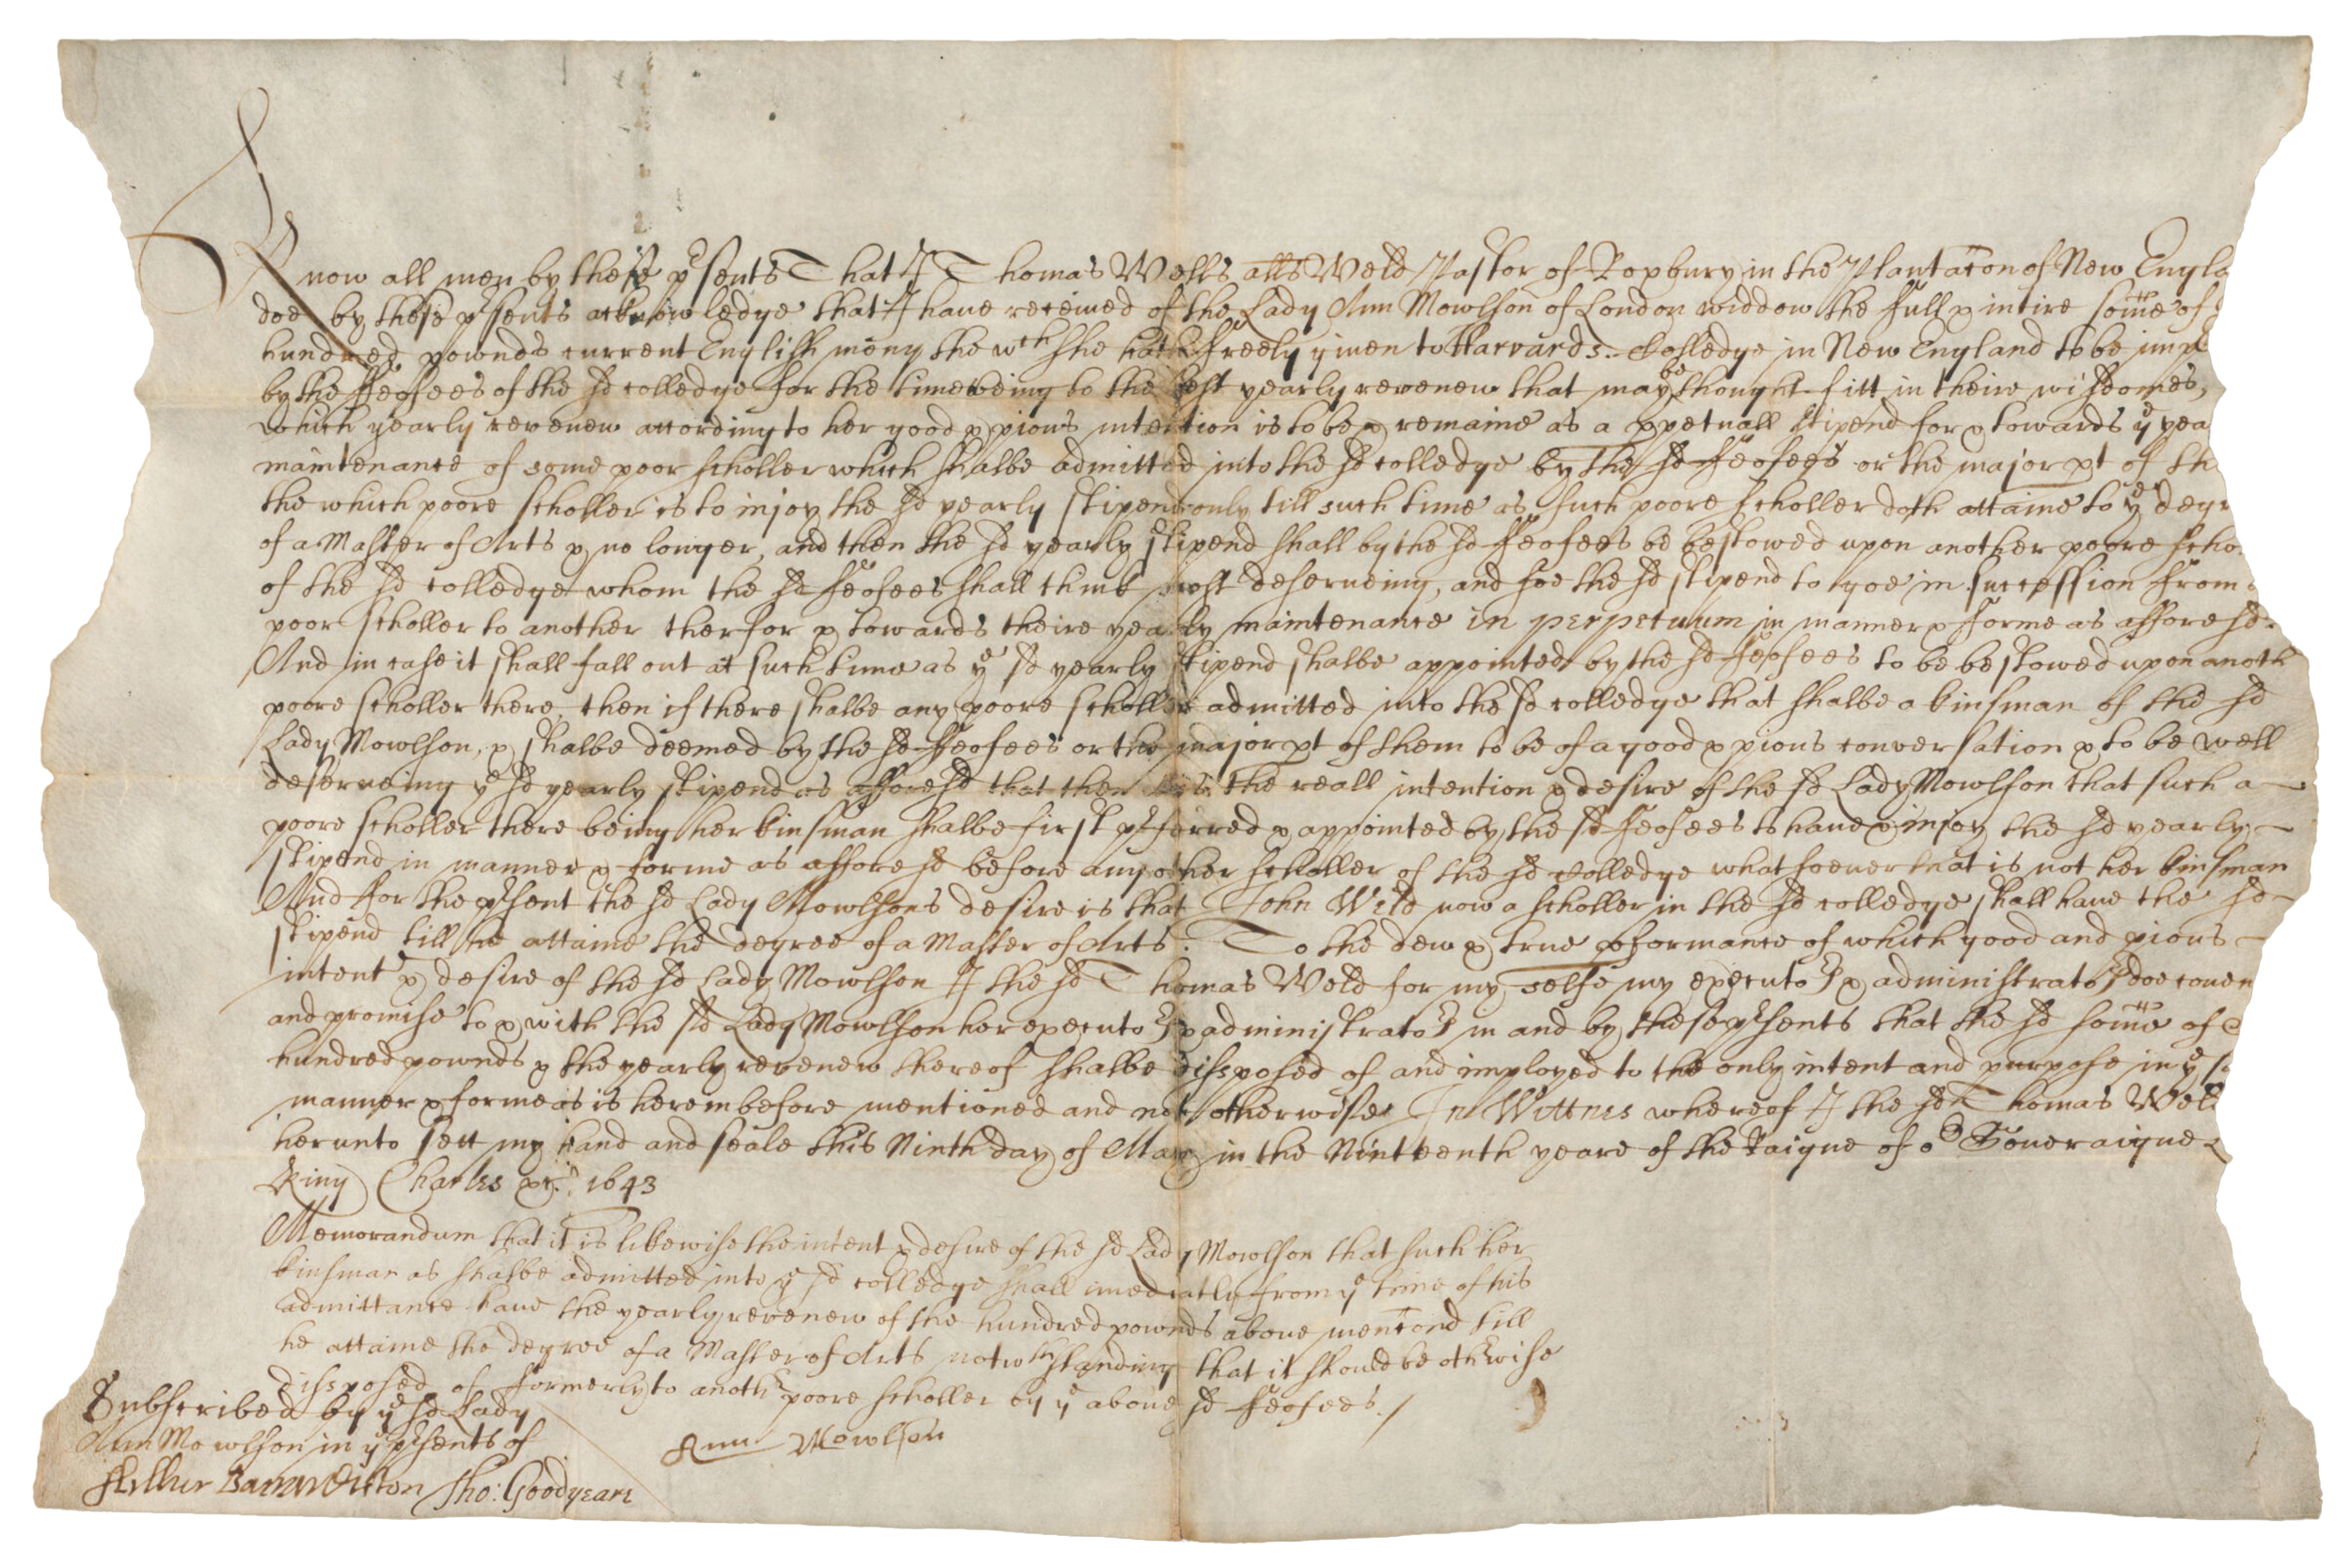 Know all men by these pr̃sents That I Thomas Wells als̃ Weld Pastor of Roxbury in the Plantac̃on of New Engla
doe by these pr̃sents acknowledge that I have received of the Lady Ann Mowlson of London widdow the full & intire som̃e of
hundred pownds current English mony the wch she hath freely given to Harvards Colledge in New England to be impl
by the ffeofees of the sd colledge for the time being to the best yearly revenew that may be thought fitt in theire wisdomes,
which yearly revenew according to her good & pious intention is to be & remaine as a ꝑpetuall stipend for & towards ye yea
maintenance of some poor scholler which shalbe admitted into the sd colledge by the sd ffeofees or the major pt of th
the which poore scholler is to injoy the sd yearly stipend only till such time as such poore scholler doth attaine to ye degr
of a Master of Arts & no longer, and then the sd yearly stipend shall by the sd ffeofees be bestowed upon another poore scho
of the sd colledge whom the sd ffeofees shall think most deserveing, and soe the sd stipend to goe in succession from
poor scholler to another therfor & towards theire yearly maintenance in perpetuum in manner & forme as afforesd.
And in case it shall fall out at such time as ye sd yearly stipend shalbe appointed by the sd ffeofees to be bestowed upon anoth
poore scholler there, then if there shalbe any poore scholler admitted into the sd colledge that shalbe a kinsman of the sd
Lady Mowlson, & shalbe deemed by the sd ffeofees or the major pt of them to be of a good & pious conversation & to be well
deserveing ye sd yearly stipend as afforesd that then it is the reall intention & desire of the sd Lady Mowlson that such a
poore scholler there being her kinsman shalbe first pr̃ferred & appointed by the sd ffeofees to have & injoy the sd yearly
stipend in manner & forme as afforesd before any other scholler of the sd Colledge whatsoever that is not her kinsman
And for the pr̃sent the sd Lady Mowlsons desire is that John Weld now a scholler in the sd colledge shall have the sd
stipend till he attaine the degree of a Master of Arts. To the dew & true ꝑformance of which good and pious
intent & desire of the sd Lady Mowlson I the sd Thomas Weld for my selfe my executors & administrators doe coven
and promise to & with the sd Lady Mowlson her executors & administrators in and by these pr̃sents that the sd som̃e of
hundred pownds & the yearly revenew thereof shalbe disposed of and imployed to the only intent and purpose in ye
manner & forme as is herein before mentioned and not otherwise. In Wittnes whereof I the sd Thomas Weld
herunto sett my hand and seale this Ninth day of May in the Ninteenth yeare of the Raigne of or Soveraigne
King Charles 1643
Memorandum that it is likewise the intent & desire of the sd Lady Mowlson that such her
kinsman as shalbe admitted into ye sd colledge shall imediatly from ye time of his
admittance have the yearly revenew of the hundred pownds above menc̃ond till
he attaine the degree of a Master of Arts notwthstanding that it should be othrwise
disposed of formerly to anothr poore scholler by ye above sd ffeofees./
Subscribed by ye sd Lady
Ann Mowlson in ye pr̃sents of
Ann Mowlson
Arthur Barnardiston Tho: Goodyeare